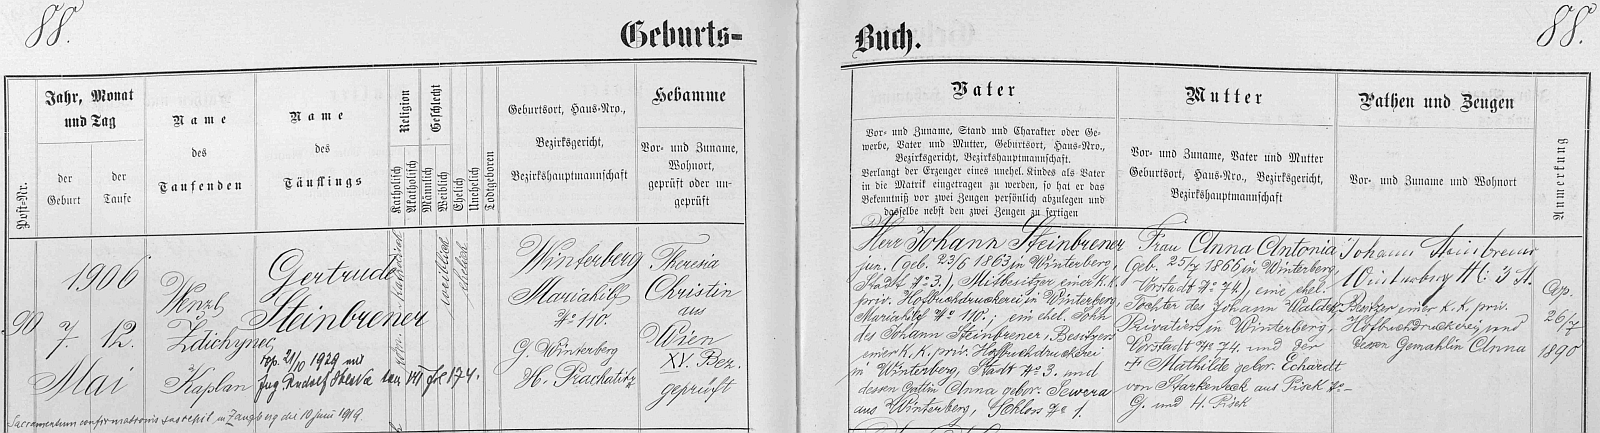 88.
Geburts-
Buch.
88.
Post-Nr.
Jahr, Monat
und Tag
der
Geburt
der
Taufe
Name
des
Taufenden
Name
des
Täuflings
Religion
Katholisch
Akatholisch
Geschlecht
Männlich
Weiblich
Ehelich
Unehelich
Todtgeboren
Geburtsort, Haus-Nro.,
Bezirksgericht,
Bezirkshauptmannschaft
Hebamme
Vor- und Zuname,
Wohnort,
geprüft oder un-
geprüft
Vater
Vor- und Zuname, Stand und Charakter oder Ge-
werbe, Vater und Mutter, Geburtsort, Haus-Nro.,
Bezirksgericht, Bezirkshauptmannschaft.
Verlangt der Erzeuger eines unehel. Kindes als Vater
in die Matrik eingetragen zu werden, so hat er das
Bekenntniß vor zwei Zeugen persönlich abzulegen und
dasselbe nebst den zwei Zeugen zu fertigen
Mutter
Vor- und Zuname, Vater und Mutter
Geburtsort, Haus-Nro., Bezirksgericht,
Bezirkshauptmannschaft
Pathen und Zeugen
Vor- und Zuname und Wohnort
Anmerkung
90
1906
7
12.
Mai
Wenzl
Zdichynec
Kaplan
Gertrude
Steinbrener
cop. 21/10 1929 mit
Ing Rudolf
VII fol 174.
röm. katholisch
weiblich
ehelich
Winterberg
Mariahilf
No 110.
G. Winterberg
H. Prachatitz
Theresia
Christin
aus
Wien
XV. Bez.
geprüft
Herr Johann Steinbrener
jun. (geb. 23/6 1863 in Winterberg,
Stadt No 3.), Mitbesitzer einer k. k.
priv. Hofbuchdruckerei in Winterberg,
Mariahilf No 110.; ein ehel. Sohn
des Johann Steinbrener, Besitzers
einer k. k. priv. Hofbuchdruckerei
in Winterberg, Stadt No 3. und
dessen Gattin Anna gebor. Sewera
aus Winterberg, Schloss No 1.
Frau Anna Antonia
(geb. 25/7 1866 in Winterberg,
Vorstadt No 74.), eine ehel.
Tochter des Johann Walder,
Privatiers in Winterberg,
Vorstadt No 74. und der
† Mathilde gebor. Echardt
von Starkeneck aus Pisek No -
G. und H. Pisek
Johann Steinbrener
Winterberg N: 3 St.
Besitzer einer k. k. priv.
Hofbuchdruckerei und
dessen Gemahlin Anna
Cop.
26/7
1890
Sacramentum confirmationis suscepit in Zangberg die 10 Juni 1919.